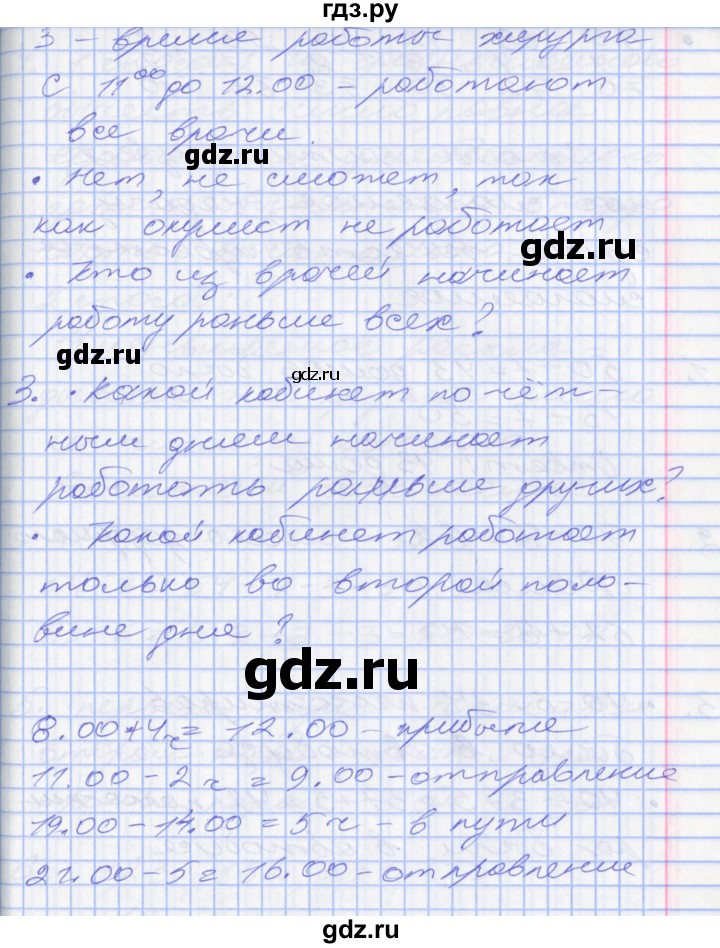 гдз.ру
3 – время работы хирурга
С 11⁰⁰ до 12.00 – работают
все врачи.
gdz.ru
gdz.ru
• Нет, не сможет, так
как окулист не работает
gdz.ru
• Кто из врачей начинает
gdz.ru
работу раньше всех?
gdz.ru
gdz.ru
3. • Какой кабинет по чёт-
ным дням начинает
работать раньше других?
gdz.ru
• Какой кабинет работает
только во второй поло-
вине дня?
gdz.ru
8.00+4ч = 12.00 – прибытие
11.00 – 2 ч = 9.00 – отправление
19.00 – 14.00 = 5 ч – в пути
21.00 – 5 = 16.00 – отправление
gdz.ru
gdz.ru